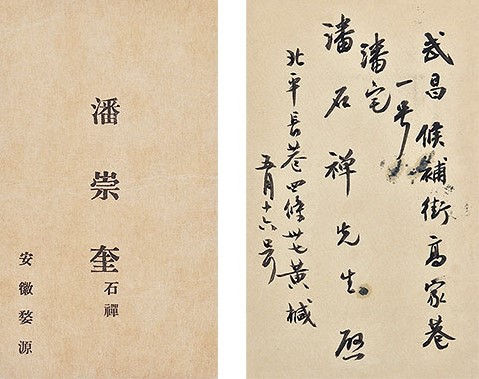 潘崇奎
石禪
安徽婺源
武昌候補街高家巷
一号
潘宅
潘石禅先生啟
北平長巷四條七黃緘
五月十六号